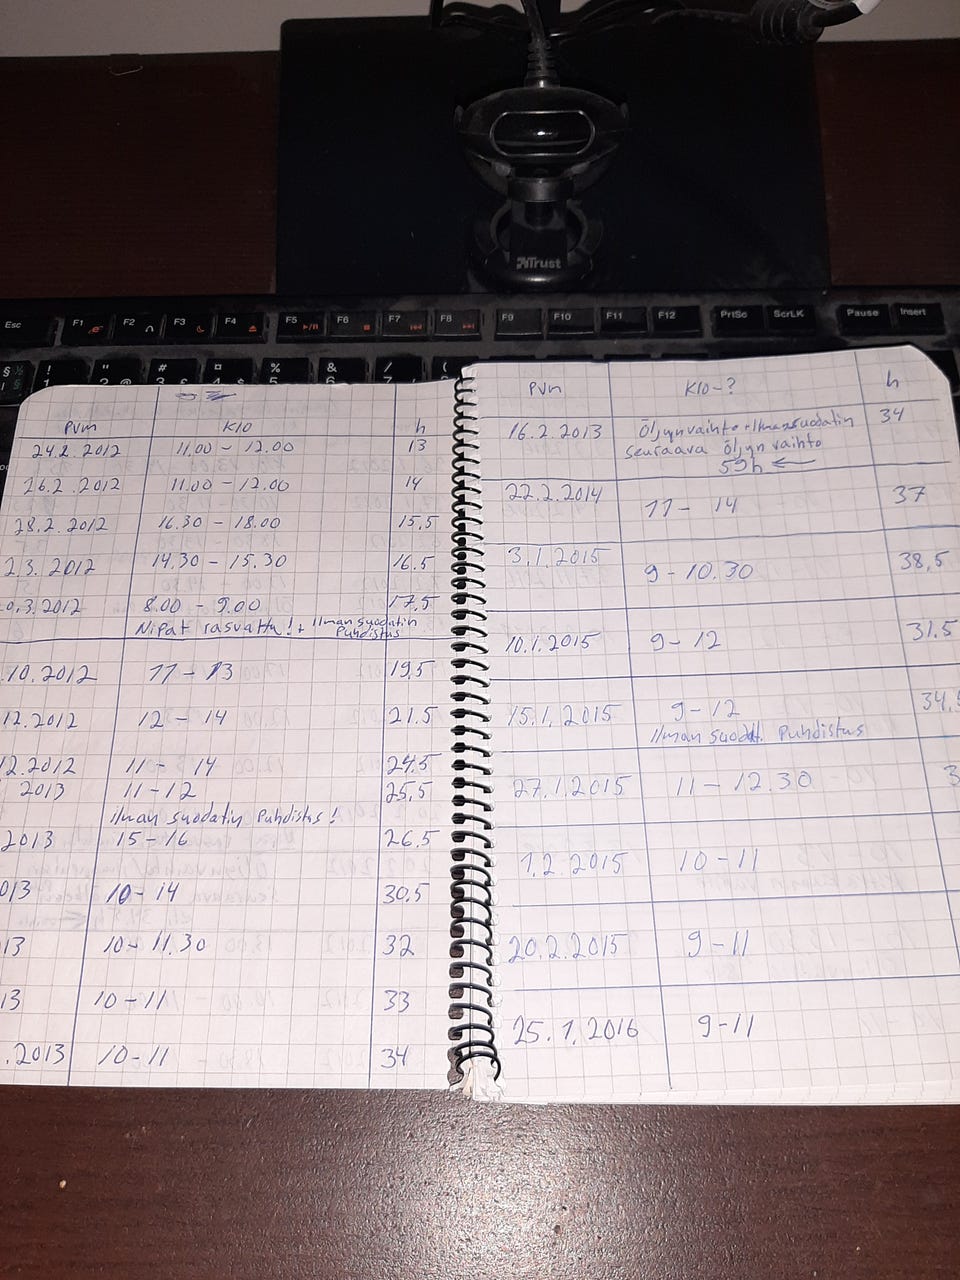 Trust
Esc F1 F2 F3 F4 F5 F6 F7 F8 F9 F10 F11 F12 PrtSc ScrLK Pause Insert
PVM K10 h
24.2.2012 11.00 - 12.00 13
26.2.2012 11.00 - 12.00 14
28.2.2012 16.30 - 18.00 15,5
2.3.2012 14.30 - 15.30 16.5
0.3.2012 8.00 - 9.00 17,5
Nipat rasvattu! + Ilman suodatin
Puhdistus
.10.2012 11 - 13 19,5
12.2012 12 - 14 21.5
12.2012 11 - 14 24.5
2013 11 - 12 25,5
ilman suodatin Puhdistus!
2013 15 - 16 26.5
013 10 - 14 30,5
13 10 - 11.30 32
13 10 - 11 33
.2013 10 - 11 34
PVM K10-? h
16.2.2013 Öljynvaihto + Ilmansuodatin 34
seuraava öljyn vaihto
59h ←
22.2.2014 11 - 14 37
3.1.2015 9 - 10.30 38,5
10.1.2015 9 - 12 31.5
15.1.2015 9 - 12 34,5
Ilman suodat. Puhdistus
27.1.2015 11 - 12.30 3
1.2.2015 10 - 11
20.2.2015 9 - 11
25.1.2016 9 - 11